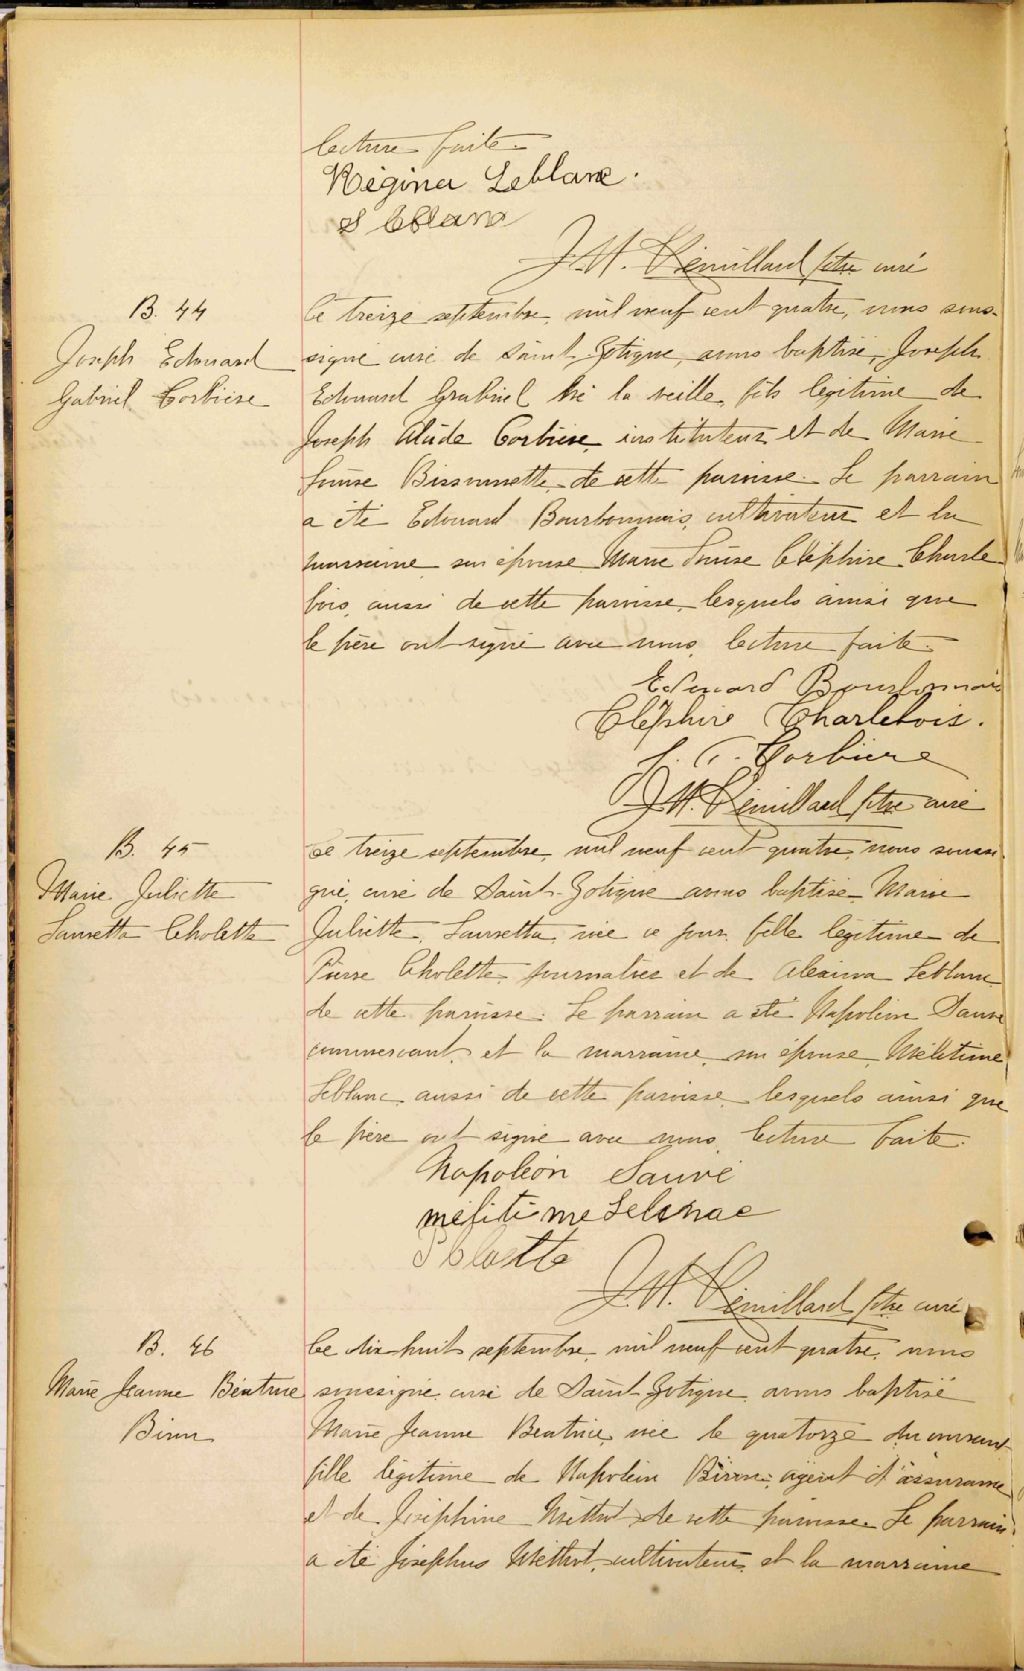 lecture faite.
Régina Leblanc.
S Leblanc
J. H. Rémillard ptre curé
B. 44
Joseph Edouard
Gabriel Corbière
Le treize septembre, mil neuf cent quatre, nous sous-
signé curé de Saint Zotique, avons baptisé, Joseph
Edouard Gabriel né la veille, fils légitime de
Joseph Corbière, instituteur et de Marie
Louise Bissonnette, de cette paroisse. Le parrain
a été Edouard Bourbonnais, cultivateur et la
marraine, son épouse, Marie Louise Cléphire Charle-
bois, aussi de cette paroisse, lesquels ainsi que
le père ont signé avec nous, lecture faite.
Edouard Bourbonnais
Cléphire Charlebois.
J. Corbiere
J. H. Rémillard ptre curé
B. 45
Marie Juliette
Lauretta Cholette
Le treize septembre, mil neuf cent quatre, nous soussi-
gné, curé de Saint-Zotique avons baptisé Marie
Juliette, Lauretta, née ce jour, fille légitime de
Pierre Cholette, journalier et de Alexina Leblanc
de cette paroisse. Le parrain a été Napoléon Sauvé
commercant, et la marraine, son épouse, Mélitime
Leblanc, aussi de cette paroisse, lesquels ainsi que
le père ont signé avec nous, lecture faite.
Napoléon Sauvé
melitime
P
J. H. Rémillard ptre curé
B. 46
Marie Jeanne Béatrice
Biron
Le dix-huit septembre, mil neuf cent quatre, nous
soussigné, curé de Saint Zotique, avons baptisé
Marie Jeanne Beatrice, née le quatorze du courant
fille légitime de Napoléon Biron, agent d'assurance
et de Joséphine Méthot, de cette paroisse. Le parrain
a été Joséphus Méthot, cultivateur, et la marraine